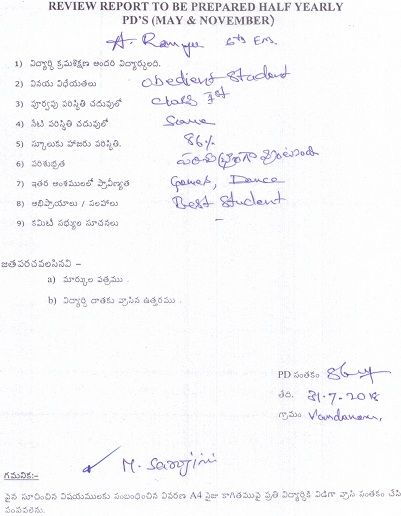 REVIEW REPORT TO BE PREPARED HALF YEARLY
PD'S (MAY & NOVEMBER)
A. Ramya 6th Em.
1) విద్యార్థి క్రమశిక్షణ అందరి విద్యార్థులది.
2) వినయ విధేయతలు obedient Student
3) పూర్వపు పరిస్థితి చదువులో Class Ist
4) నేటి పరిస్థితి చదువులో Same
5) స్కూలుకు హాజరు పరిస్థితి. 86%
6) పరిశుభ్రత పరిశుభ్రంగా వుంటుంది
7) ఇతర అంశములలో ప్రావీణ్యత Games, Dance
8) అభిప్రాయాలు / సలహాలు Best Student
9) కమిటీ సభ్యుల సూచనలు -
జతపరచవలసినవి –
a) మార్కుల పత్రము .
b) విద్యార్థి దాతకు వ్రాసిన ఉత్తరము .
PD సంతకం
తేది. 31.7.2018
గ్రామం Vandanam,
M. Sarojini
గమనిక:-
పైన సూచించిన విషయములకు సంబంధించిన వివరణ A4 సైజు కాగితముపై ప్రతి విద్యార్థికి విడిగా వ్రాసి సంతకం చేసి
పంపవలెను.